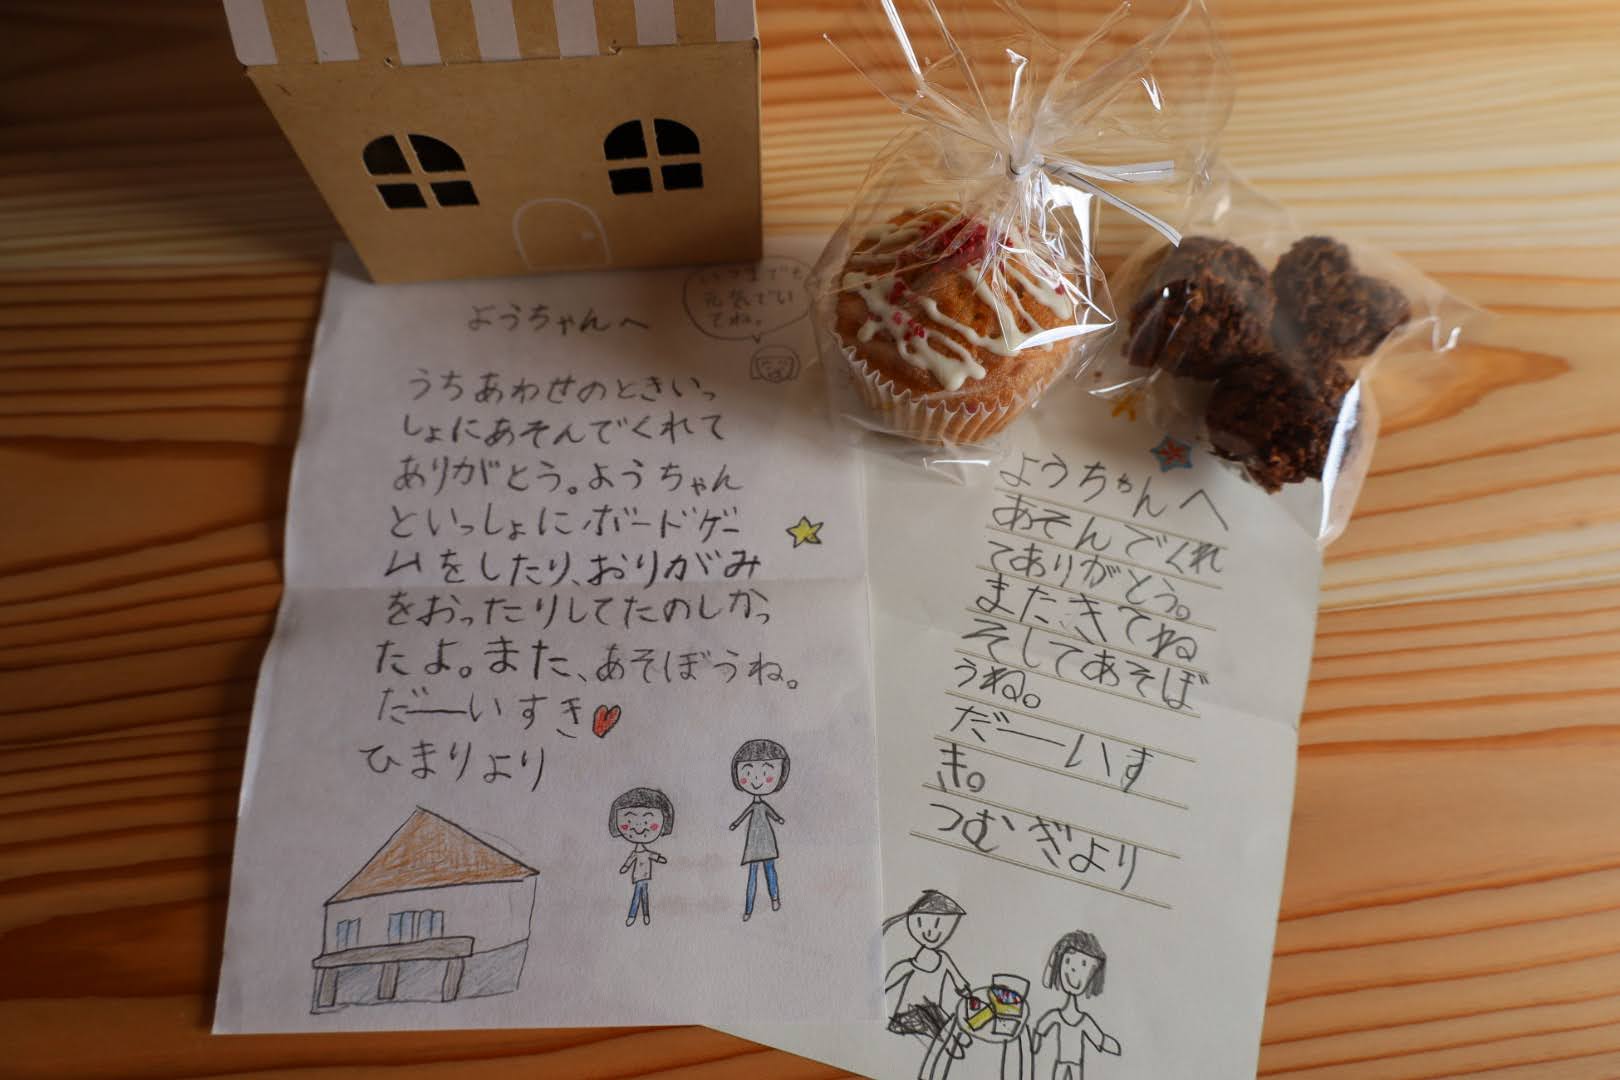 ようちゃんへ
いつまでも
元気でい
てね。
うちあわせのときいっ
しょにあそんでくれて
ありがとう。ようちゃん
といっしょにボードゲー
ムをしたり、おりがみ
をおったりしてたのしかっ
たよ。また、あそぼうね。
だーいすき
ひまりより
ようちゃんへ
あそんでくれ
てありがとう。
またきてね
そしてあそぼ
うね。
だーいす
き。
つむぎより